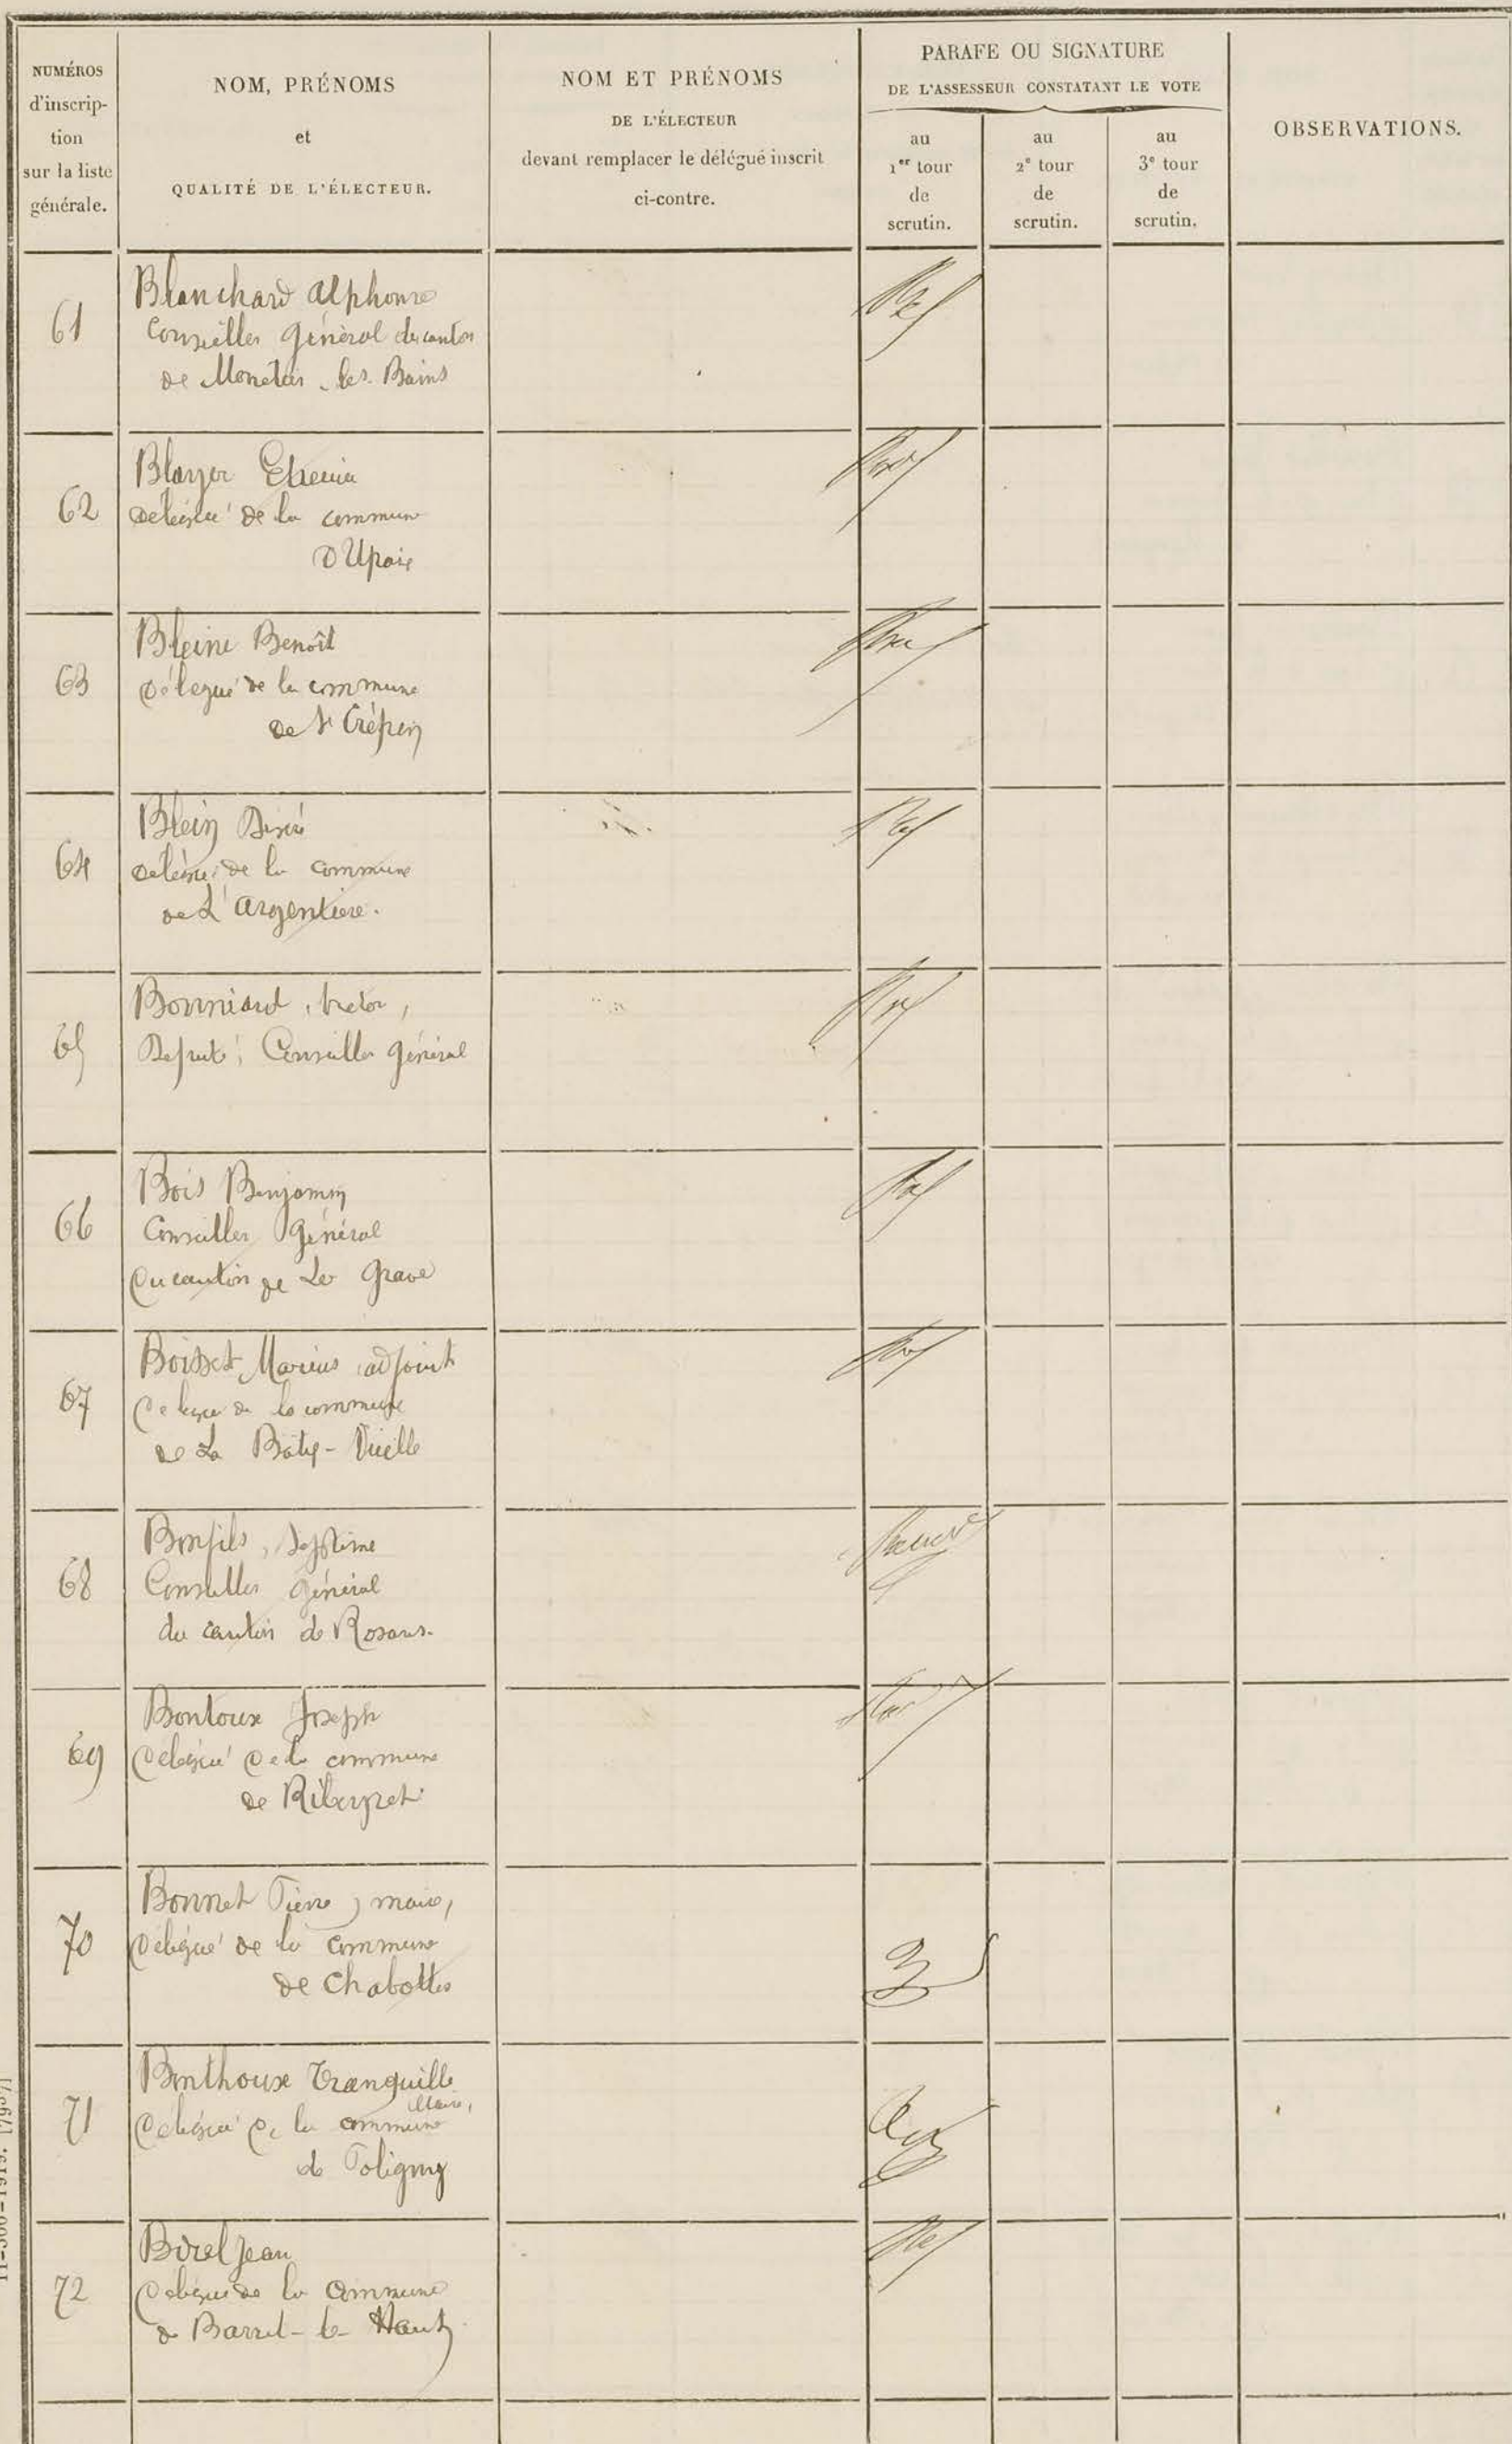 NUMÉROS
d'inscrip-
tion
sur la liste
générale.
NOM, PRÉNOMS
et
QUALITÉ DE L'ÉLECTEUR.
NOM ET PRÉNOMS
DE L'ÉLECTEUR
devant remplacer le délégué inscrit
ci-contre.
PARAFE OU SIGNATURE
DE L'ASSESSEUR CONSTATANT LE VOTE
au
1er tour
de
scrutin.
au
2e tour
de
scrutin.
au
3e tour
de
scrutin.
OBSERVATIONS.
61
Blanchard Alphonse
Conseiller Général du canton
de Monêtier-les-Bains
62
Blayer
délégué de la commune
d'Upaix
63
Bleine Benoît
délégué de la commune
de St Crépin
64
Blein Désiré
délégué de la commune
de L'Argentière.
65
Bonniard, Victor,
Député, Conseiller Général
66
Bois Benjamin
Conseiller Général
du canton de La Grave
67
Boisset Marius adjoint
délégué de la commune
de La Bâtie-Vieille
68
Bonfils, Septime
Conseiller Général
du canton de Rosans.
69
Bontoux Joseph
délégué de la commune
de Ribeyret
70
Bonnet Pierre, maire,
délégué de la commune
de Chabottes
71
Bonthoux Tranquille
Maire,
délégué de la commune
de Poligny
72
Borel Jean
délégué de la commune
de Barret-le-Haut